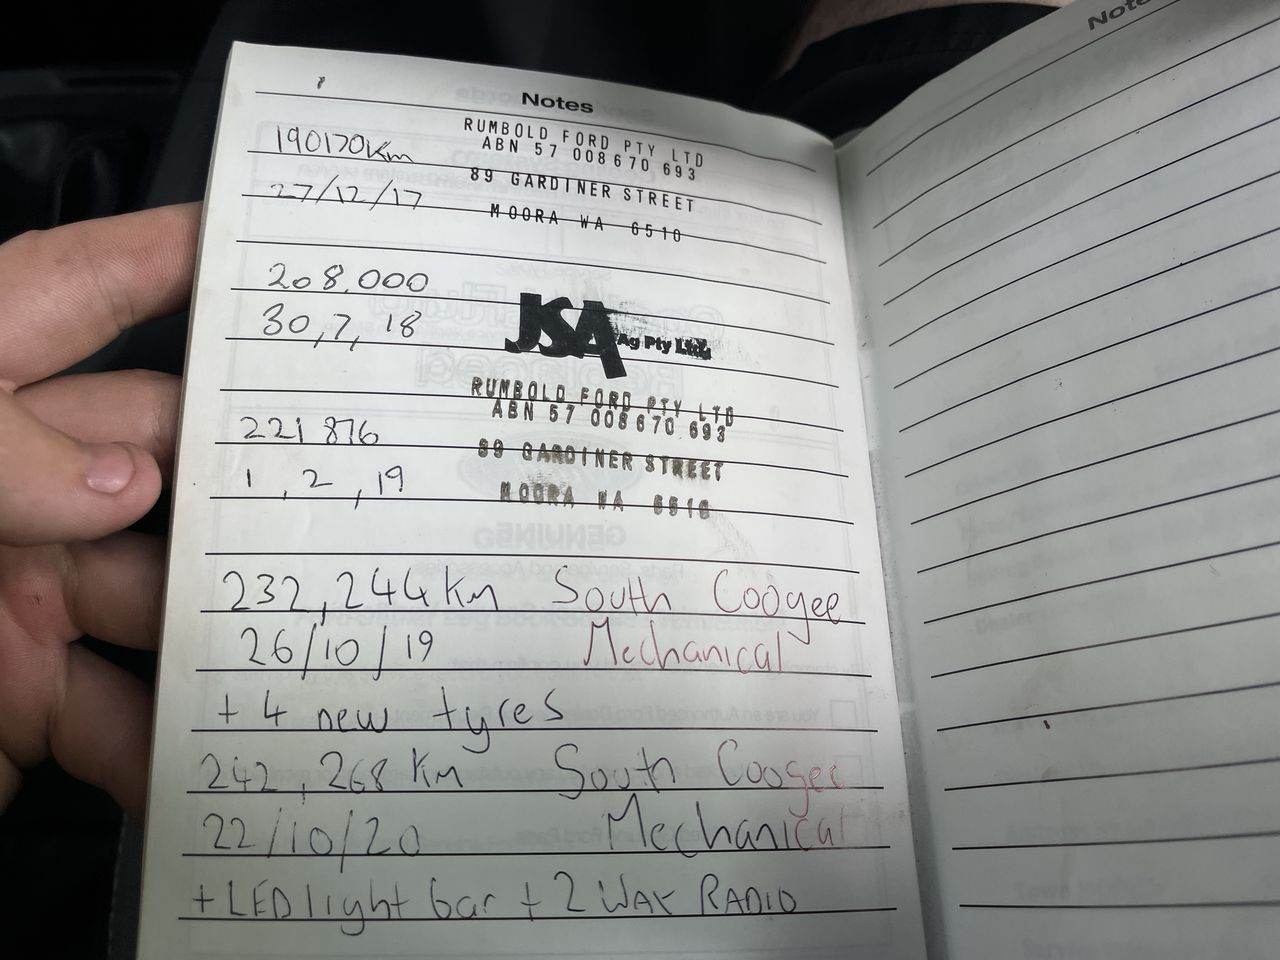 Notes
190170Km
RUMBOLD FORD PTY LTD
ABN 57 008670 693
27/12/17
89 GARDINER STREET
MOORA WA 6510
208,000
30,7,18
JSA Ag Pty Ltd
RUMBOLD FORD PTY LTD
ABN 57 008670 693
221876
89 GARDINER STREET
1,2,19
MOORA WA 6510
232,244Km South Coogee
26/10/19 Mechanical
+ 4 new tyres
242,268Km South Coogee
22/10/20 Mechanical
+ LED light bar + 2 WAY RADIO